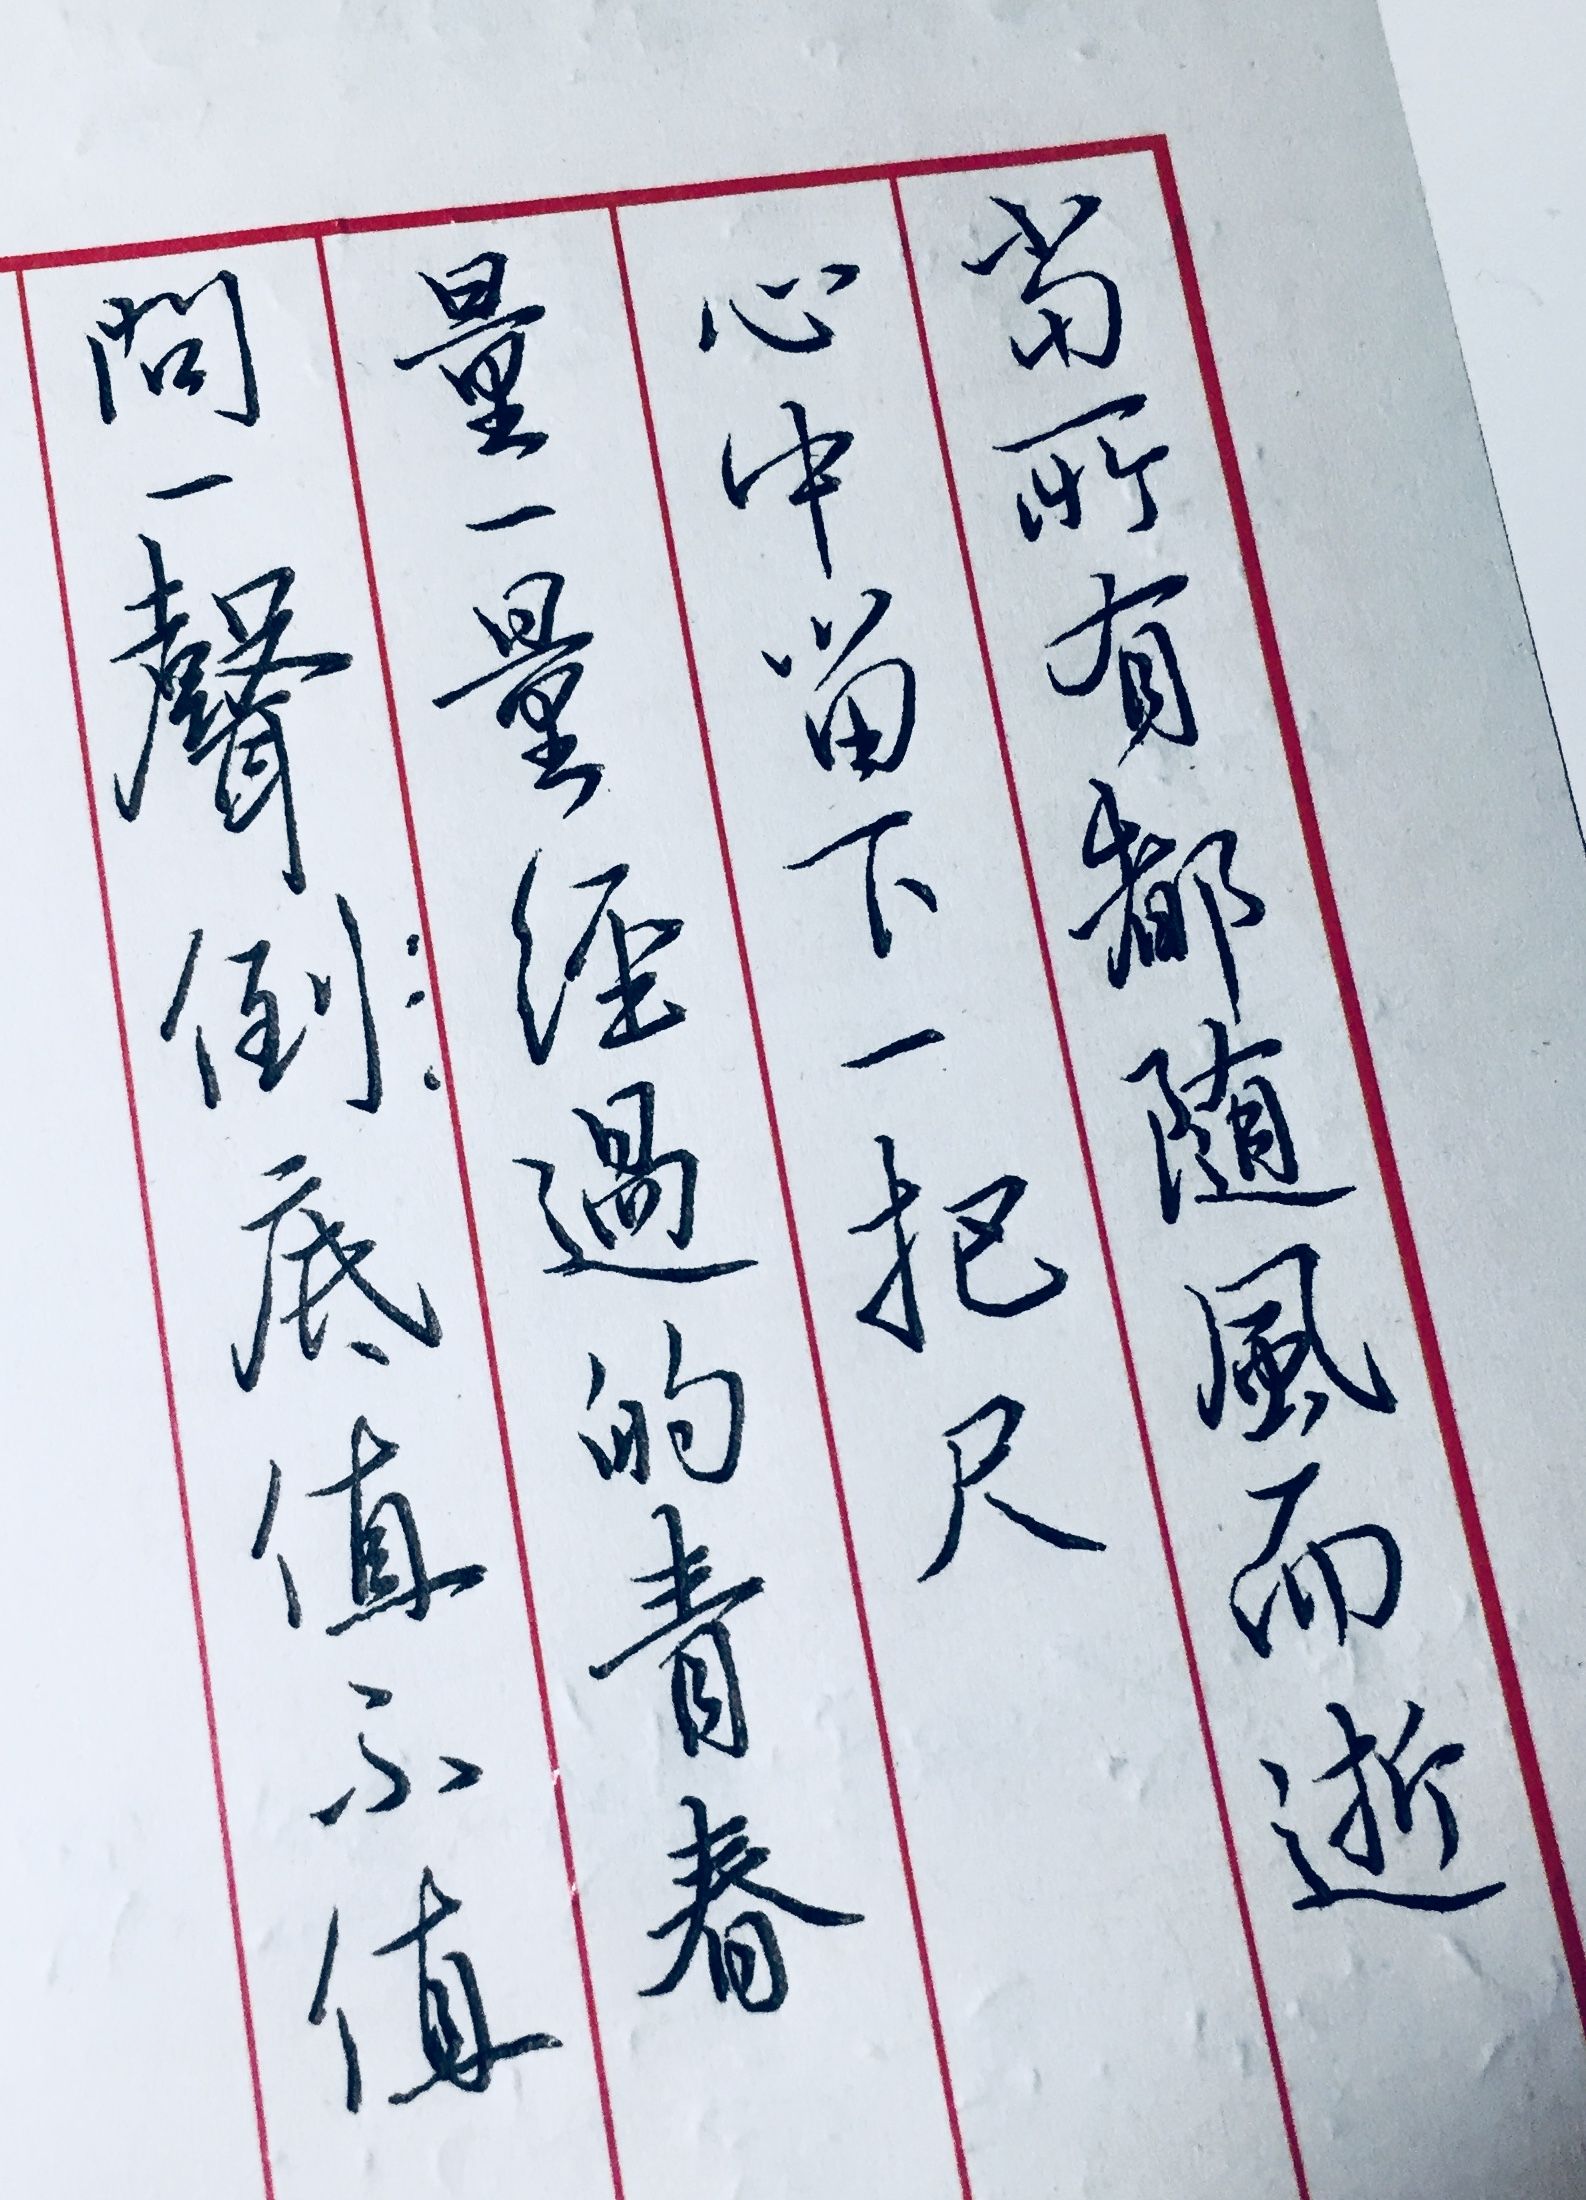 當所有都随風而逝
心中留下一把尺
量一量經過的青春
問一聲倒底值不值